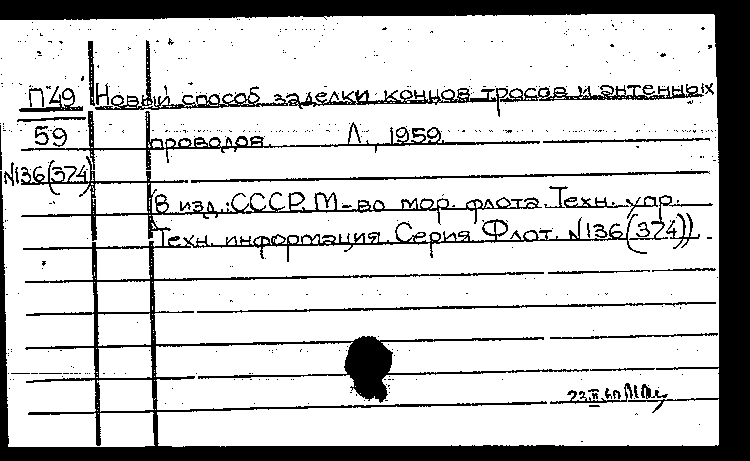 П49 Новый способ заделки концов тросов и антенных
59 проводов. Л., 1959.
N136(374)
(В изд.: СССР. М-во мор. флота. Техн. упр.
Техн. информация. Серия Флот. N136(374)).